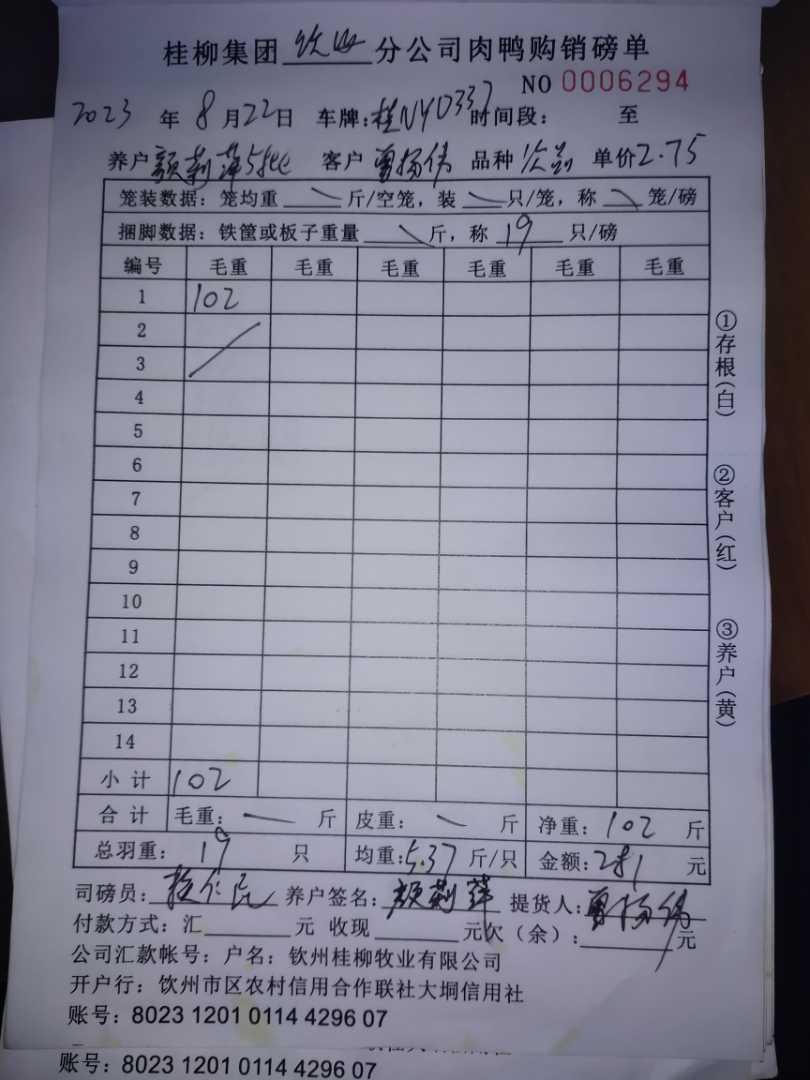 桂柳集团 钦州 分公司肉鸭购销磅单
NO 0006294
2023 年 8 月 22 日 车牌: 桂NY0337 时间段: 至
养户 颜莉萍 客户 杨伟 品种 次品 单价 2.75
笼装数据: 笼均重 斤/空笼, 装 只/笼, 称 笼/磅
捆脚数据: 铁筐或板子重量 斤, 称 19 只/磅
编号 毛重 毛重 毛重 毛重 毛重 毛重
1 102
2
3
4
5
6
7
8
9
10
11
12
13
14
小 计 102
合 计 毛重: 一 斤 皮重: 斤 净重: 102 斤
总羽重: 19 只 均重: 5.37 斤/只 金额: 281 元
司磅员: 养户签名: 颜莉萍 提货人: 杨伟
付款方式: 汇 元 收现 元欠(余): 元
公司汇款帐号: 户名: 钦州桂柳牧业有限公司
开户行: 饮州市区农村信用合作联社大垌信用社
账号: 8023 1201 0114 4296 07
账号: 8023 1201 0114 4296 07
①存根(白)
②客户(红)
③养户(黄)